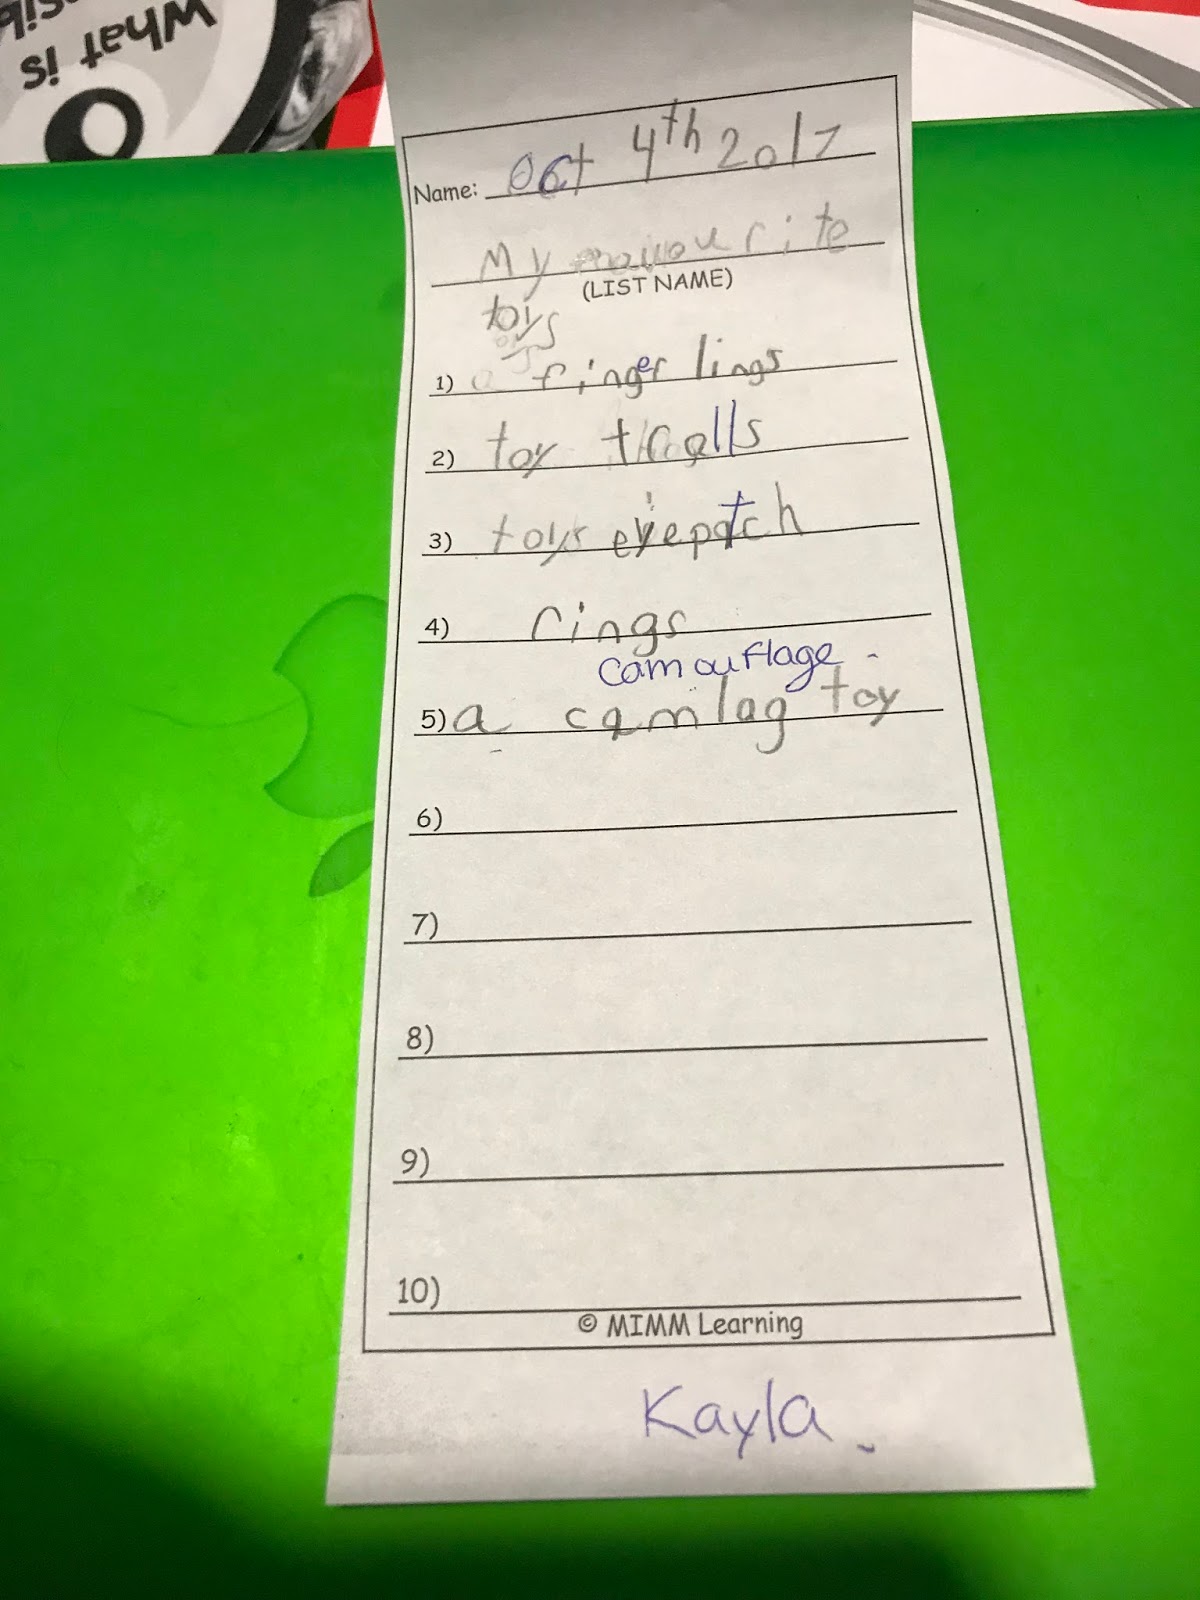 What is
Name: Oct 4th 2017
My favourite
(LIST NAME)
toys
1) a finger lings
2) toy trolls
3) toys eyepatch
4) rings
camouflage
5) a camlag toy
6)
7)
8)
9)
10)
© MIMM Learning
Kayla